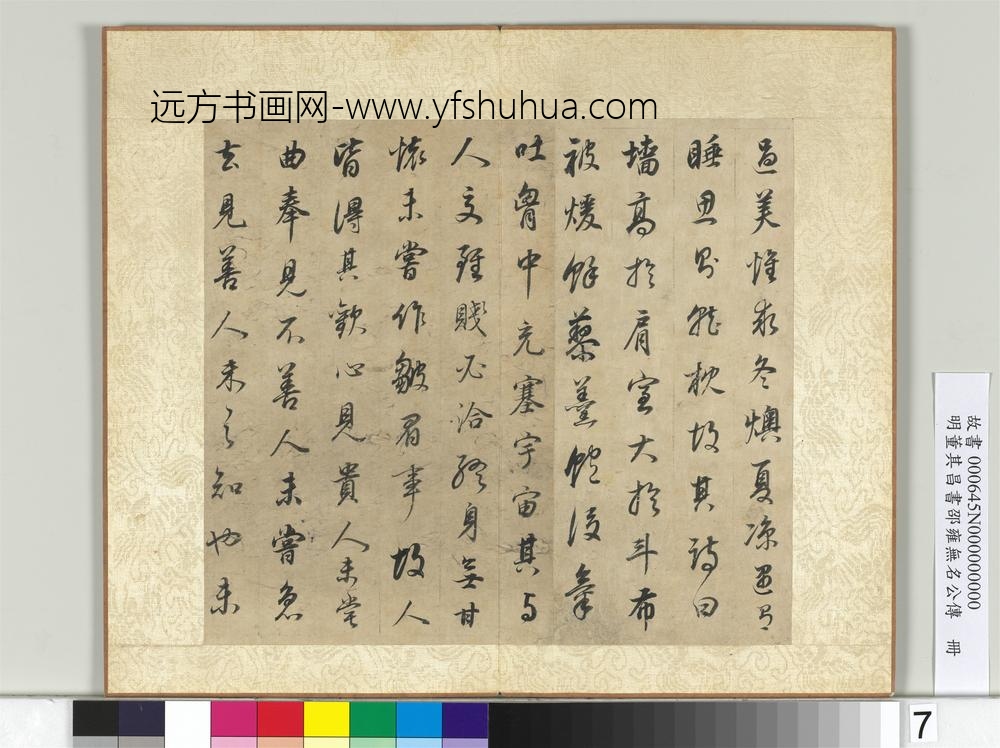 远方书画网-www.yfshuhua.com
過美惟求冬燠夏涼遇有
睡思則就枕故其詩曰
墻高於肩室大於斗布
被煖餘藜羹飽後氣
吐胷中充塞宇宙其與
人交雖賤必洽終身無甘
懷未嘗作皺眉事故人
皆得其歡心見貴人未嘗
曲奉見不善人未嘗急
去見善人未之知也未
故書 000645N000000000
明董其昌書邵雍無名公傳 冊
7